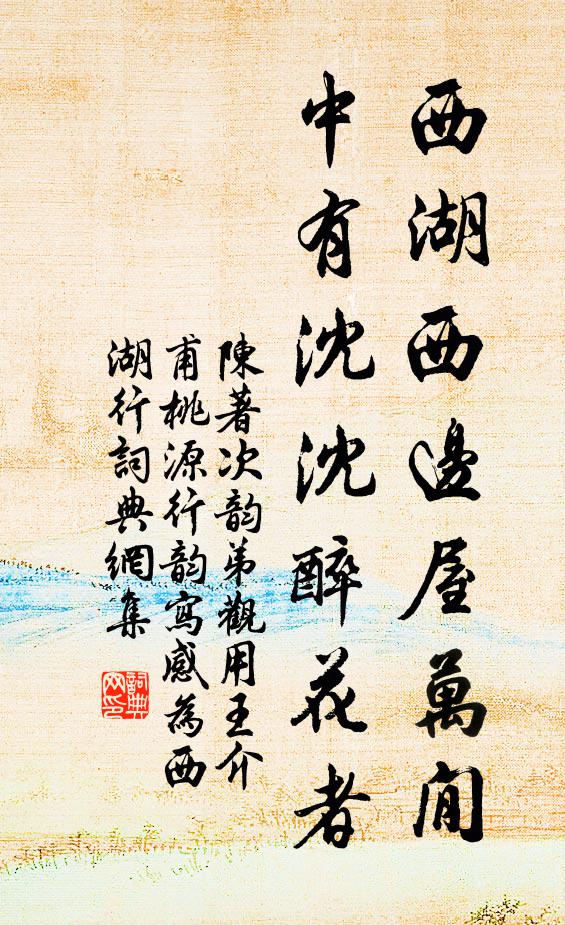 西湖西邊屋萬間
中有沈沈醉花者
陳著次韵弟觀用王介
甫桃源行韵寫感為西
湖行詞典網集
詞典
网印